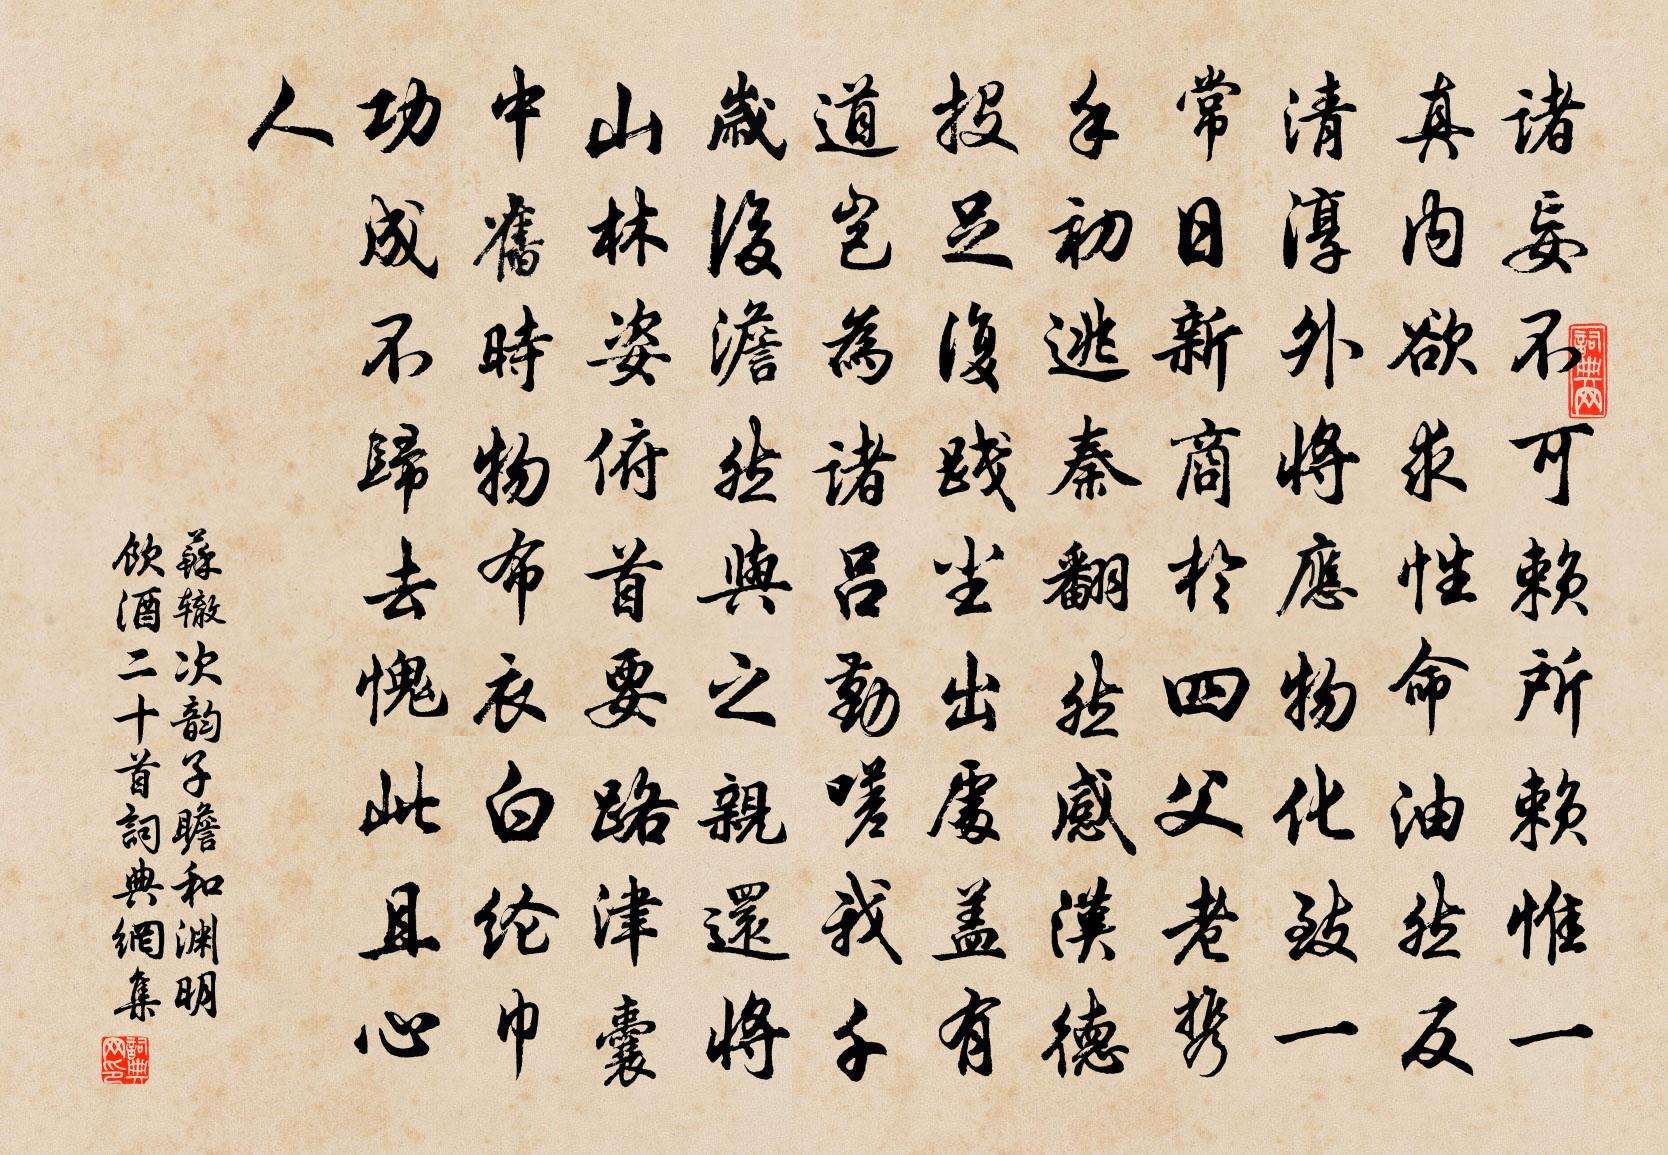 诸妄不可赖所赖惟一
真内欲求性命油然反
清淳外將應物化致一
常日新商於四父老携
手初逃秦翻然感漢德
投足復践尘出處盖有
道岂為诸吕勤嗟我千
歲後澹然與之親還將
山林姿俯首要路津囊
中舊時物布衣白纶巾
功成不歸去愧此且心
人
蘇辙次韵子瞻和渊明
飲酒二十首詞典網集
詞典网
詞典网印